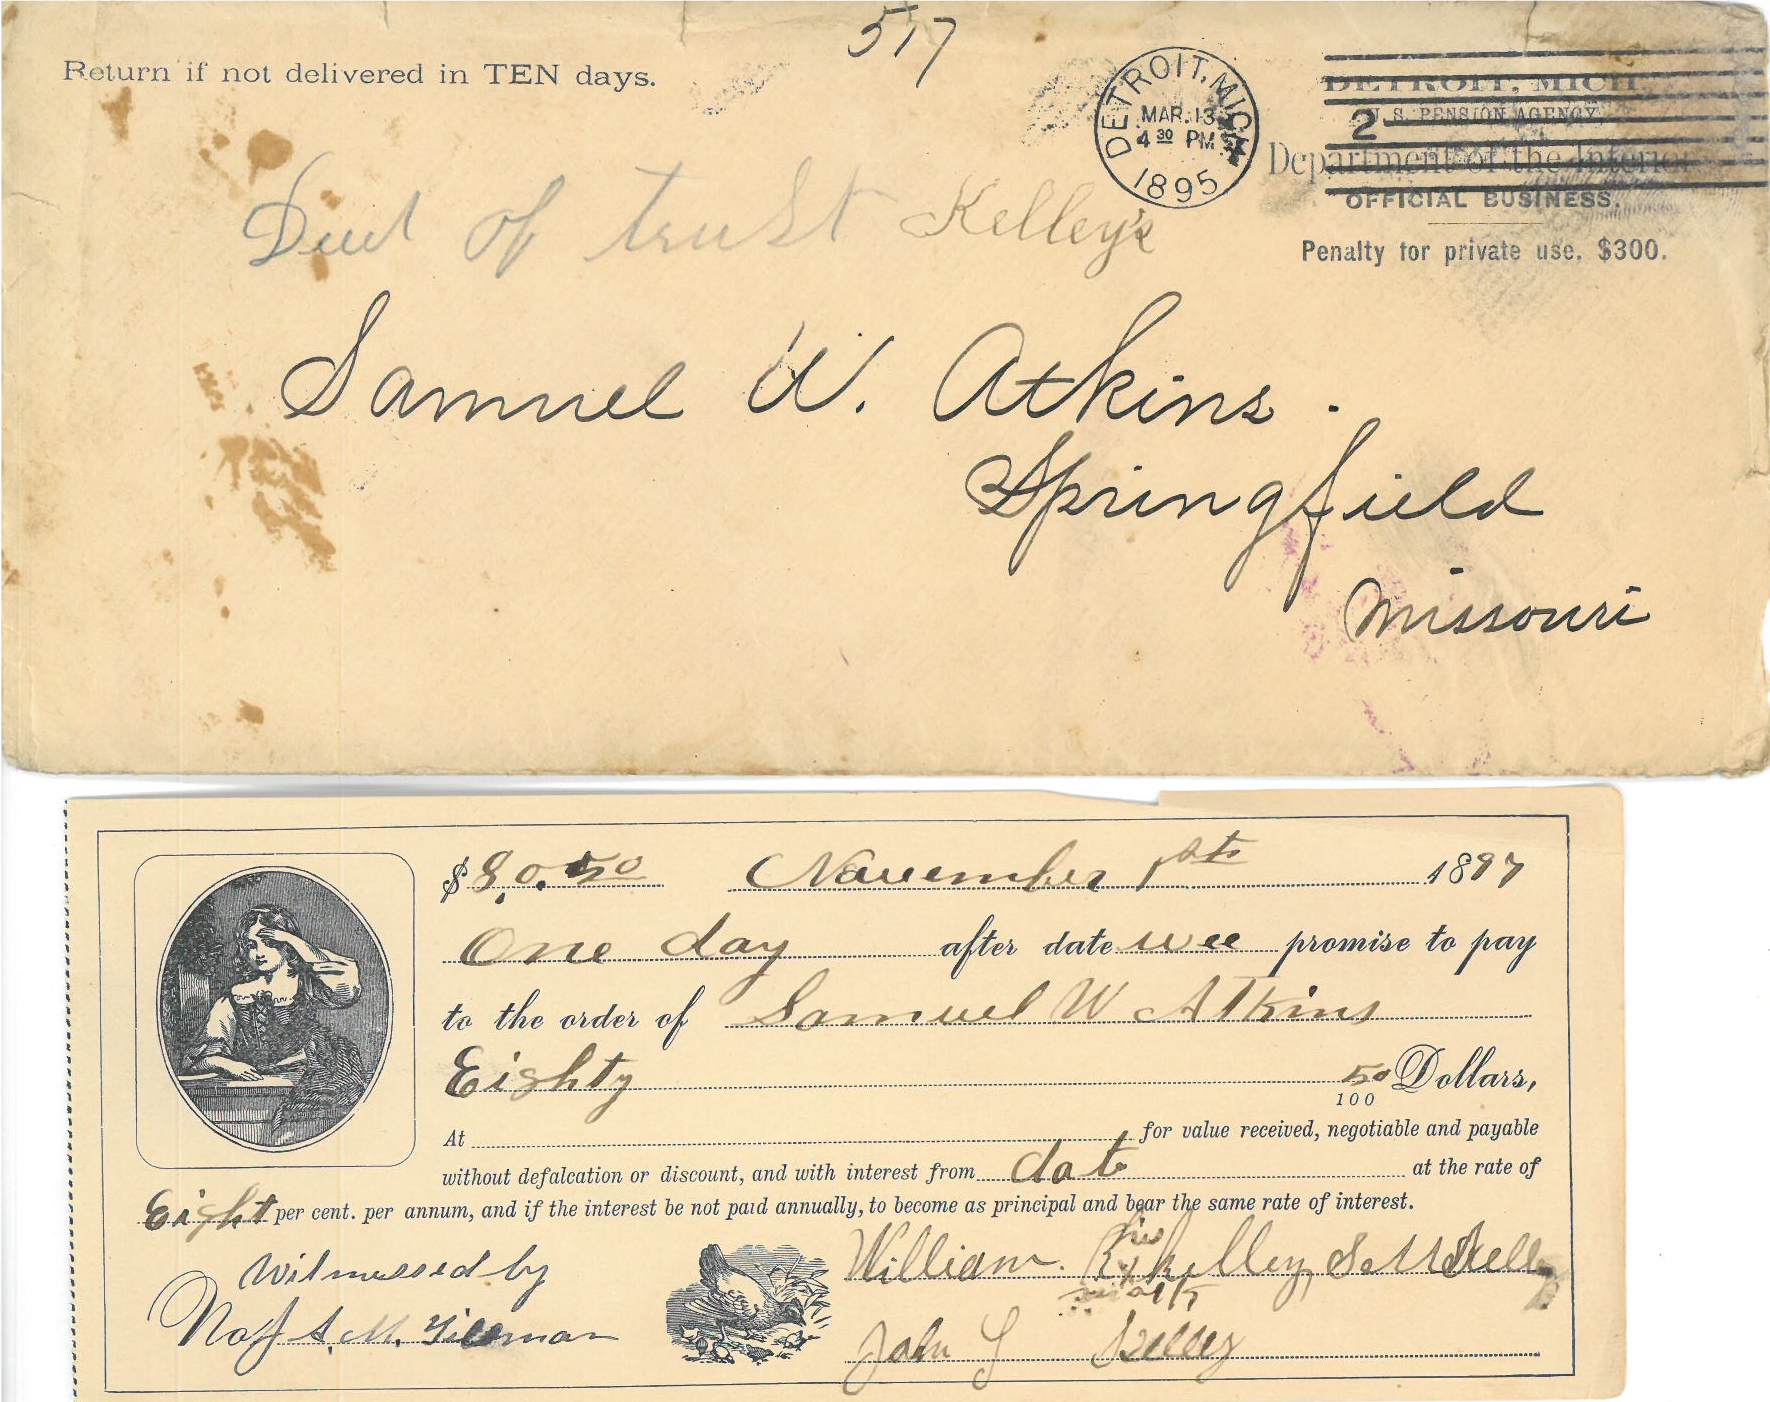 517
Return if not delivered in TEN days.
DETROIT, MICH.
MAR. 13
4 30 PM
1895
2
DETROIT, MICH.
U. S. PENSION AGENCY,
Department of the Interior
OFFICIAL BUSINESS.
Penalty for private use, $300.
Deed of trust Kelley's
Samuel W. Atkins.
Springfield
Missouri
$80.50 November 1st 1897
One day after date wee promise to pay
to the order of Samuel W Atkins
Eighty 50/100 Dollars,
At for value received, negotiable and payable
without defalcation or discount, and with interest from date at the rate of
Eight per cent. per annum, and if the interest be not paid annually, to become as principal and bear the same rate of interest.
Witnessed by
his
William. R x Kelley,
mark
John Kelley